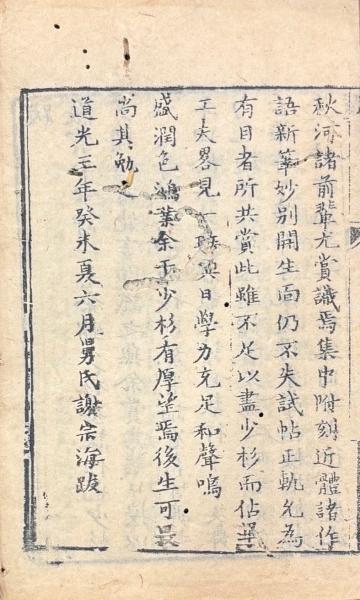 秋河諸前輩尤賞識焉集中附刻近體諸作
語新筆妙別開生面仍不失試帖正軌允為
有目者所共賞此雖不足以盡少杉而佔畢
工夫畧見一班異日學力充足和聲鳴
盛潤色鴻業余于少杉有厚望焉後生可畏
尚其勉之
道光三年癸未夏六月舅氏謝宗海跋